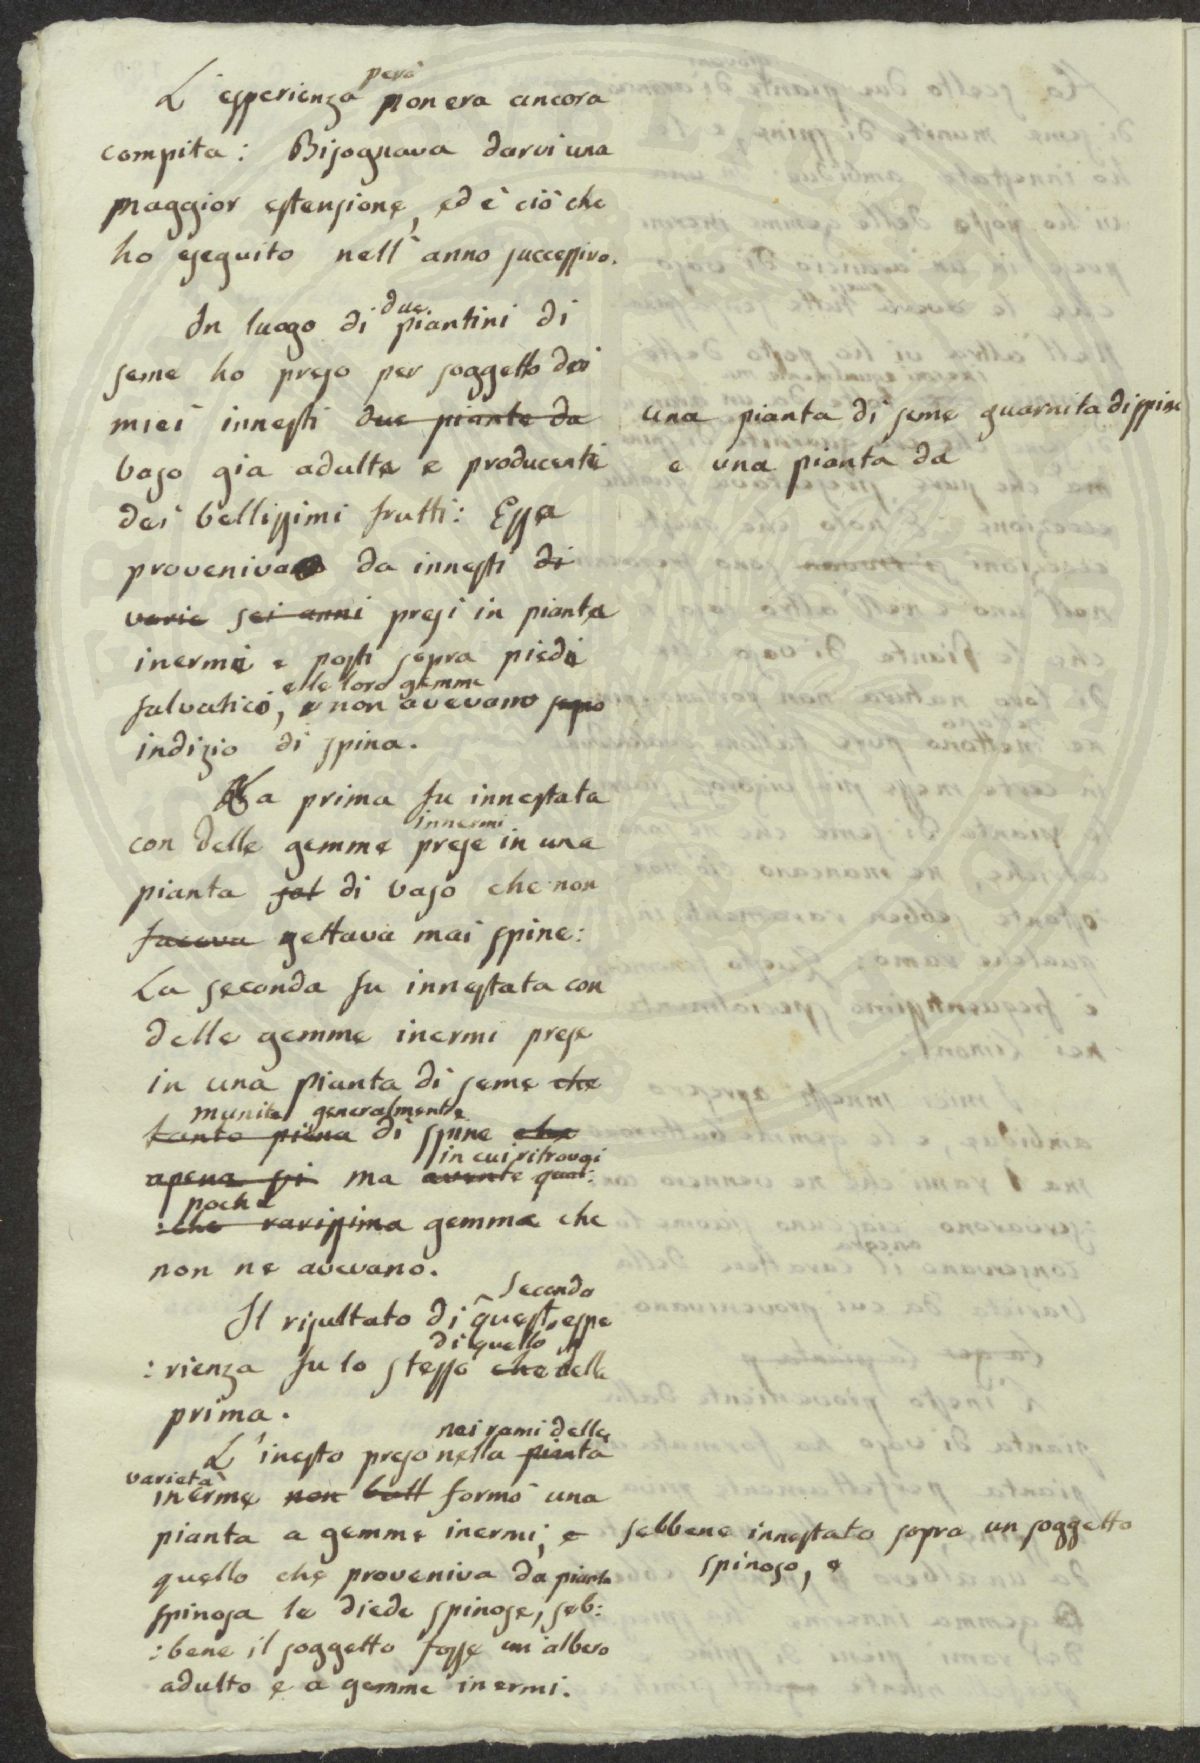 però
L'esperienza non era ancora
compita: Bisognava darvi una
maggior estensione, ed è ciò che
ho eseguito nell'anno successivo.
due
In luogo di piantini di
seme ho preso per soggetto dei
miei innesti due piante da una pianta di seme guarnita di spine
vaso gia adulta e producente e una pianta da
dei bellissimi frutti: Essa
proveniva da innesti di
varie sei anni presi in pianta
inerme e posti sopra piedi
e le loro gemme
salvatici, e non avevano
indizio di spina.
La prima fu innestata
innermi
con delle gemme prese in una
pianta di vaso che non
faceva gettava mai spine:
La seconda fu innestata con
delle gemme inermi prese
in una pianta di seme che
munita generalmente
tanto piena di spine che
in cui ritrovasi
apena vi ma avente qual:
poche
:che rarissima gemma che
non ne avevano.
seconda
Il risultato di quest. espe
di quello
:rienza fu lo stesso che della
prima.
nei rami della
L'inesto preso nella pianta
varieta
inerme non butt formò una
pianta a gemme inermi, e sebbene innestato sopra un soggetto
quello che proveniva da pianta spinoso, e
spinosa le diede spinose, seb:
:bene il soggetto fosse un albero
adulto e a gemme inermi.